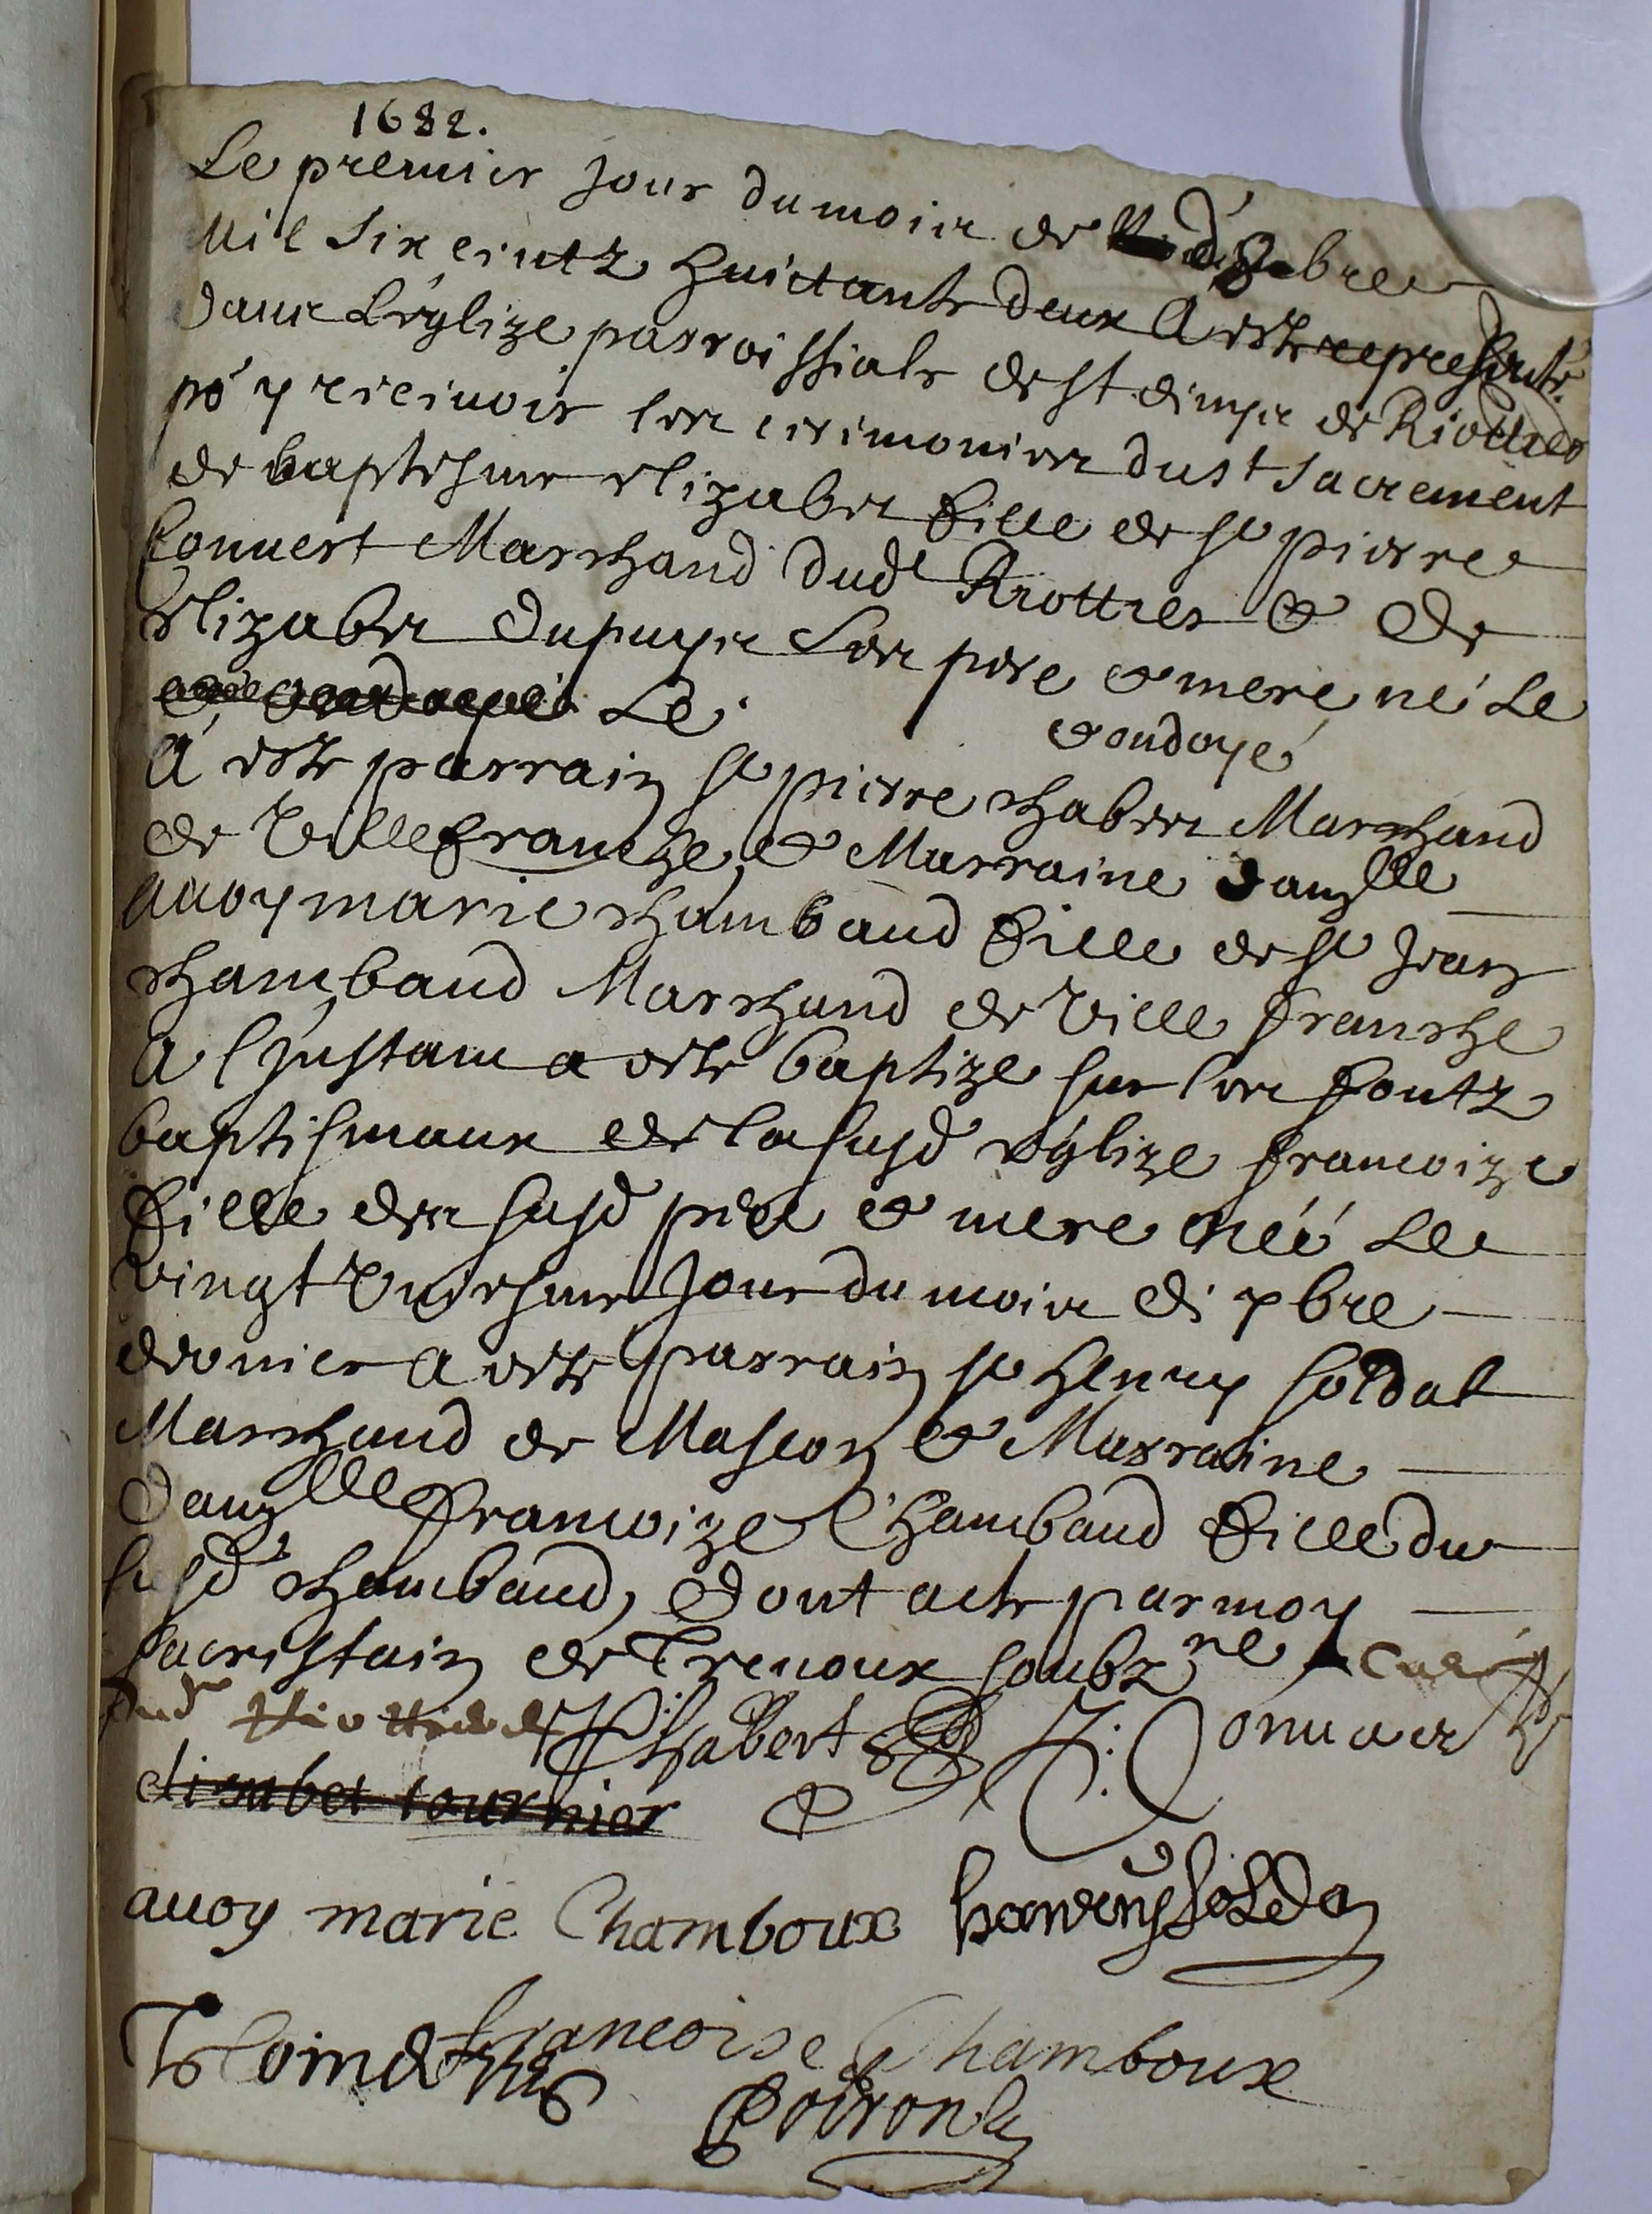 1682.
Le premier jour du mois de 8bre
Mil six centz huictante deux A esté represente
dans L'eglize parroissiale de st denys de Riottier
po' y recevoir les ceremonies du st sacrement
de baptesme Elizabet fille de sr pierre
Convert Marchand dudt Riottier & de
Elizabet dupuys Ses pere & mere né Le
& ondoyé Le
& ondoyé
A esté parrain sr pierre chabert Marchand
de Villefranche & Marraine damlle
Auoy marie chambaud fille de sr Jean
chambaud Marchand de Ville franche
A l'jnstant a esté baptize sur les fontz
baptismaux de la susd eglize francoize
fille des susd pere & mere née Le
vingt Unieme Jour du mois di 7bre
dernier A esté parrain sr henry soldat
Marchand de Mascon & Marraine
damlle francoize Chambaud fille du
susd chambaud, Dont acte par moy
sacristain de Trevoux soubzne
dud Riottier P Chabert
elisabet tournier
auoy marie Chamboux
francoise Chamboux